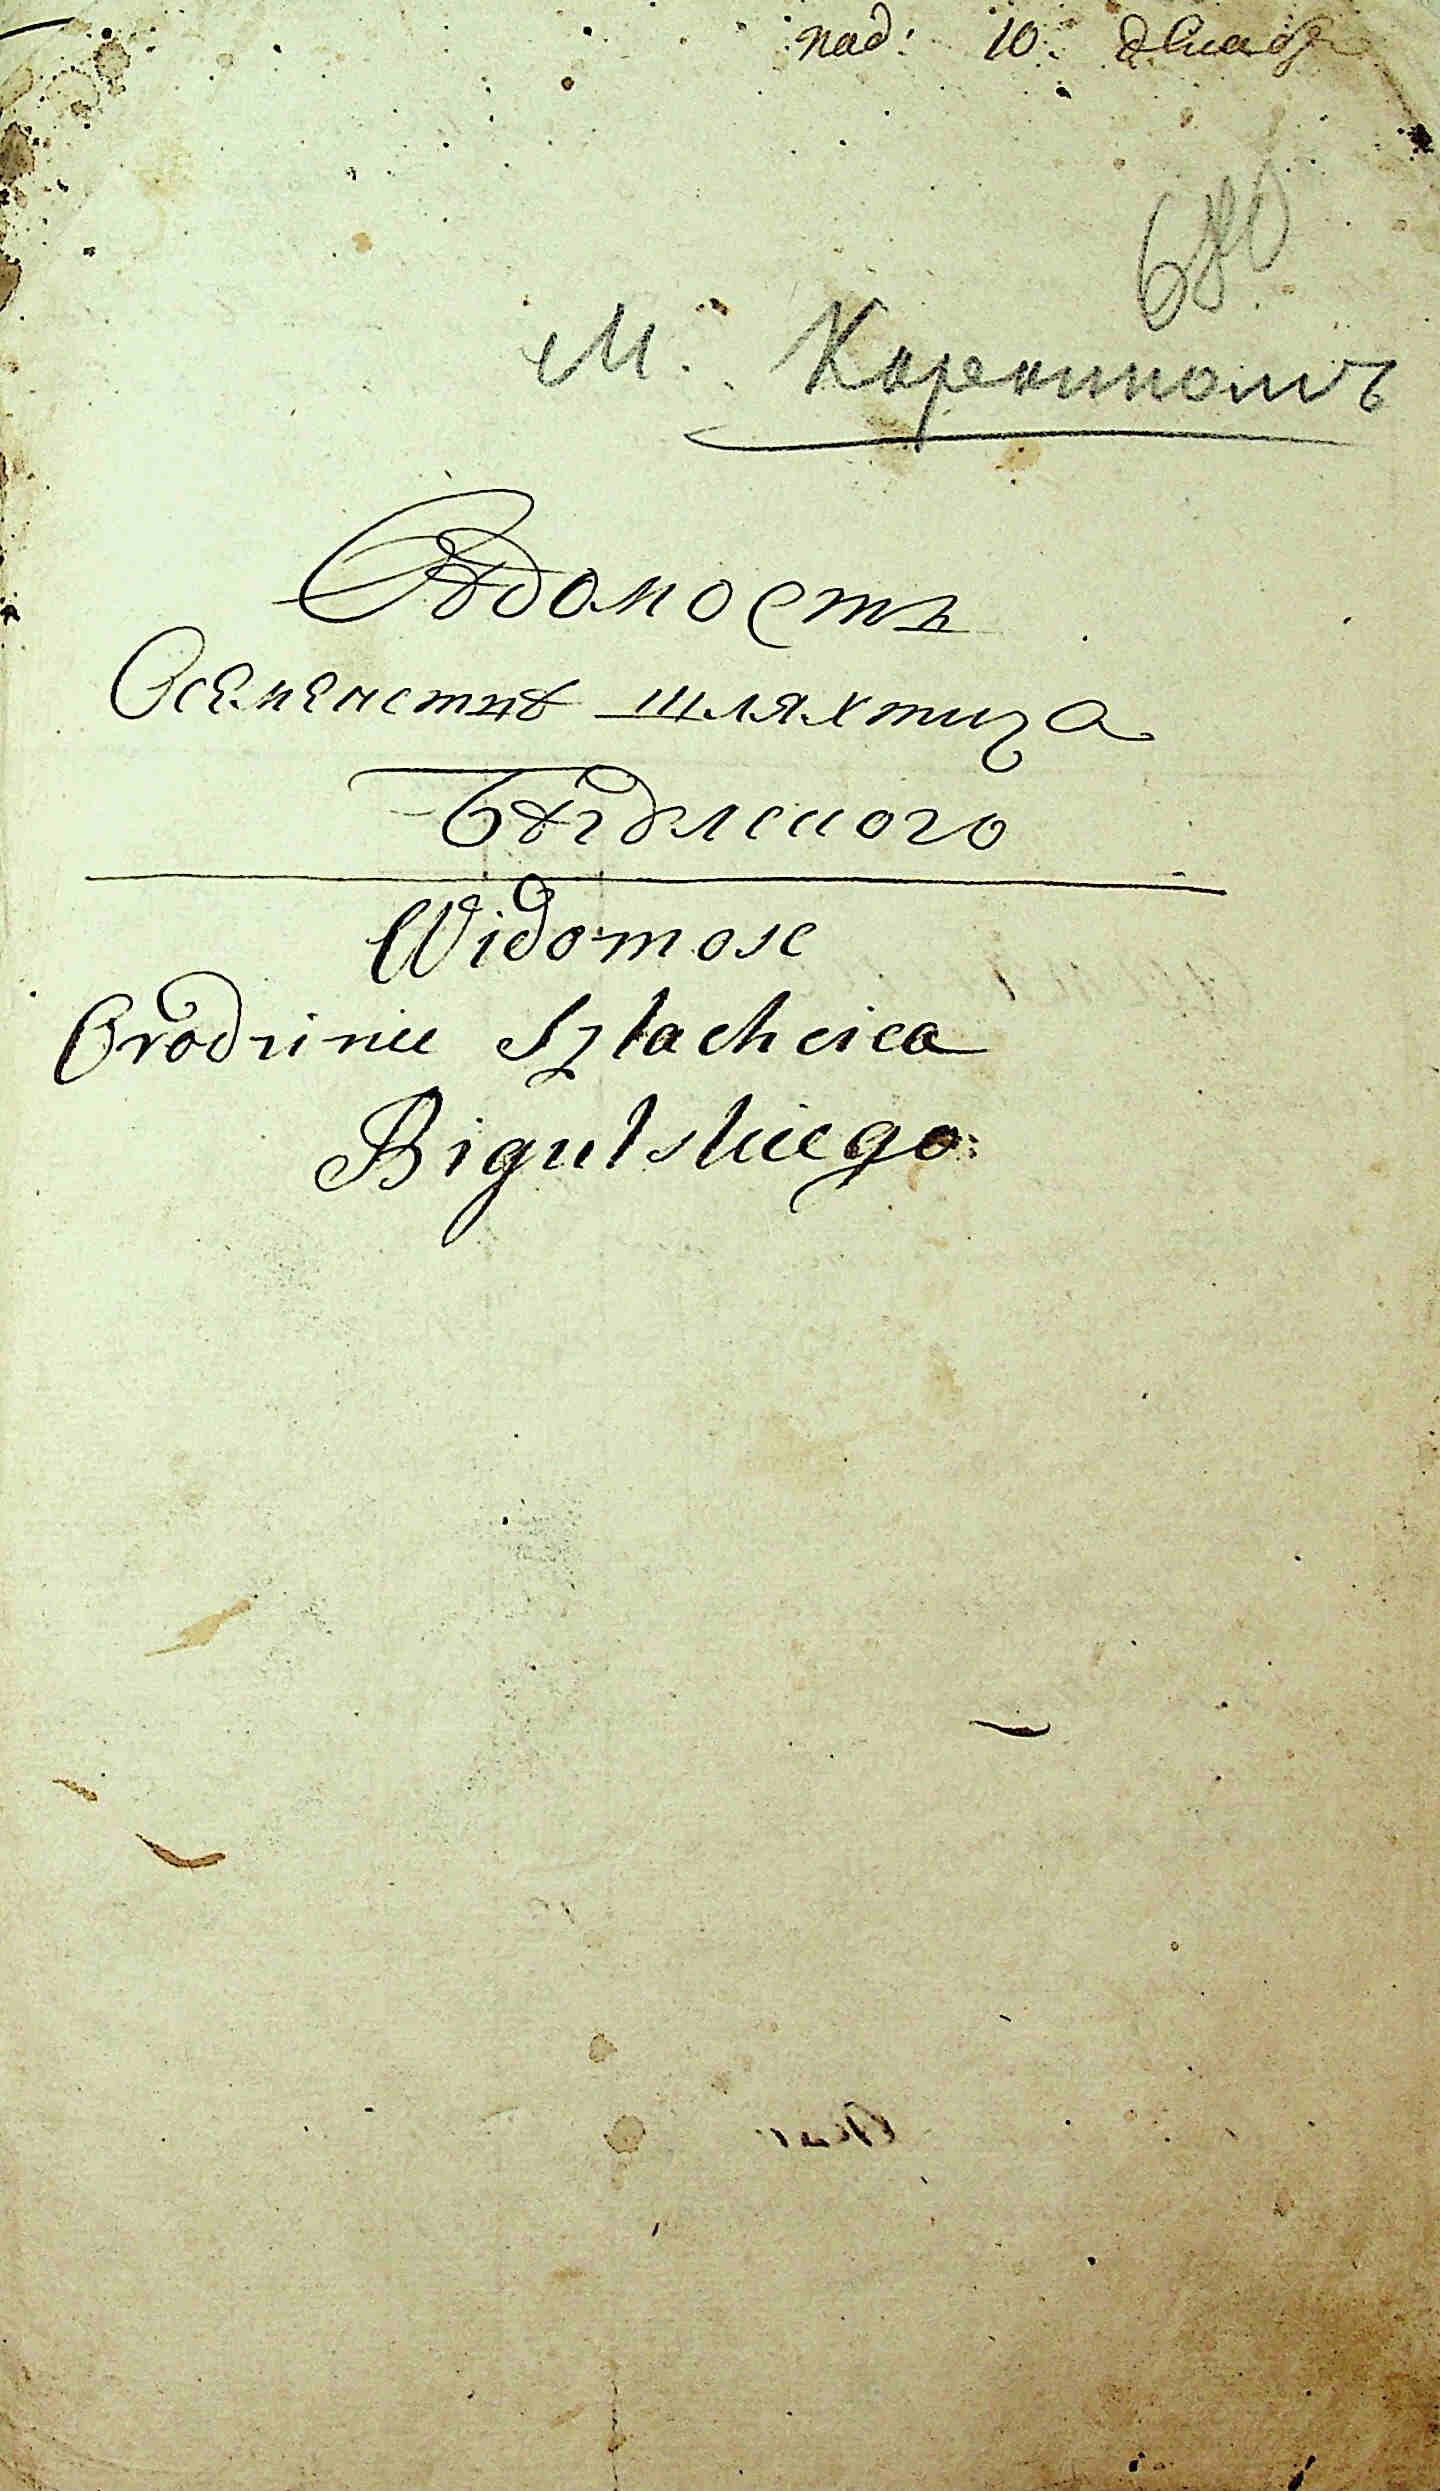 под: 10.
680
М. Коростишов
Вѣдомость
Осеменствѣ шляхтица
Бѣгдлского
Widomosc
Orodzinie Szlachcica
Bigulskiego